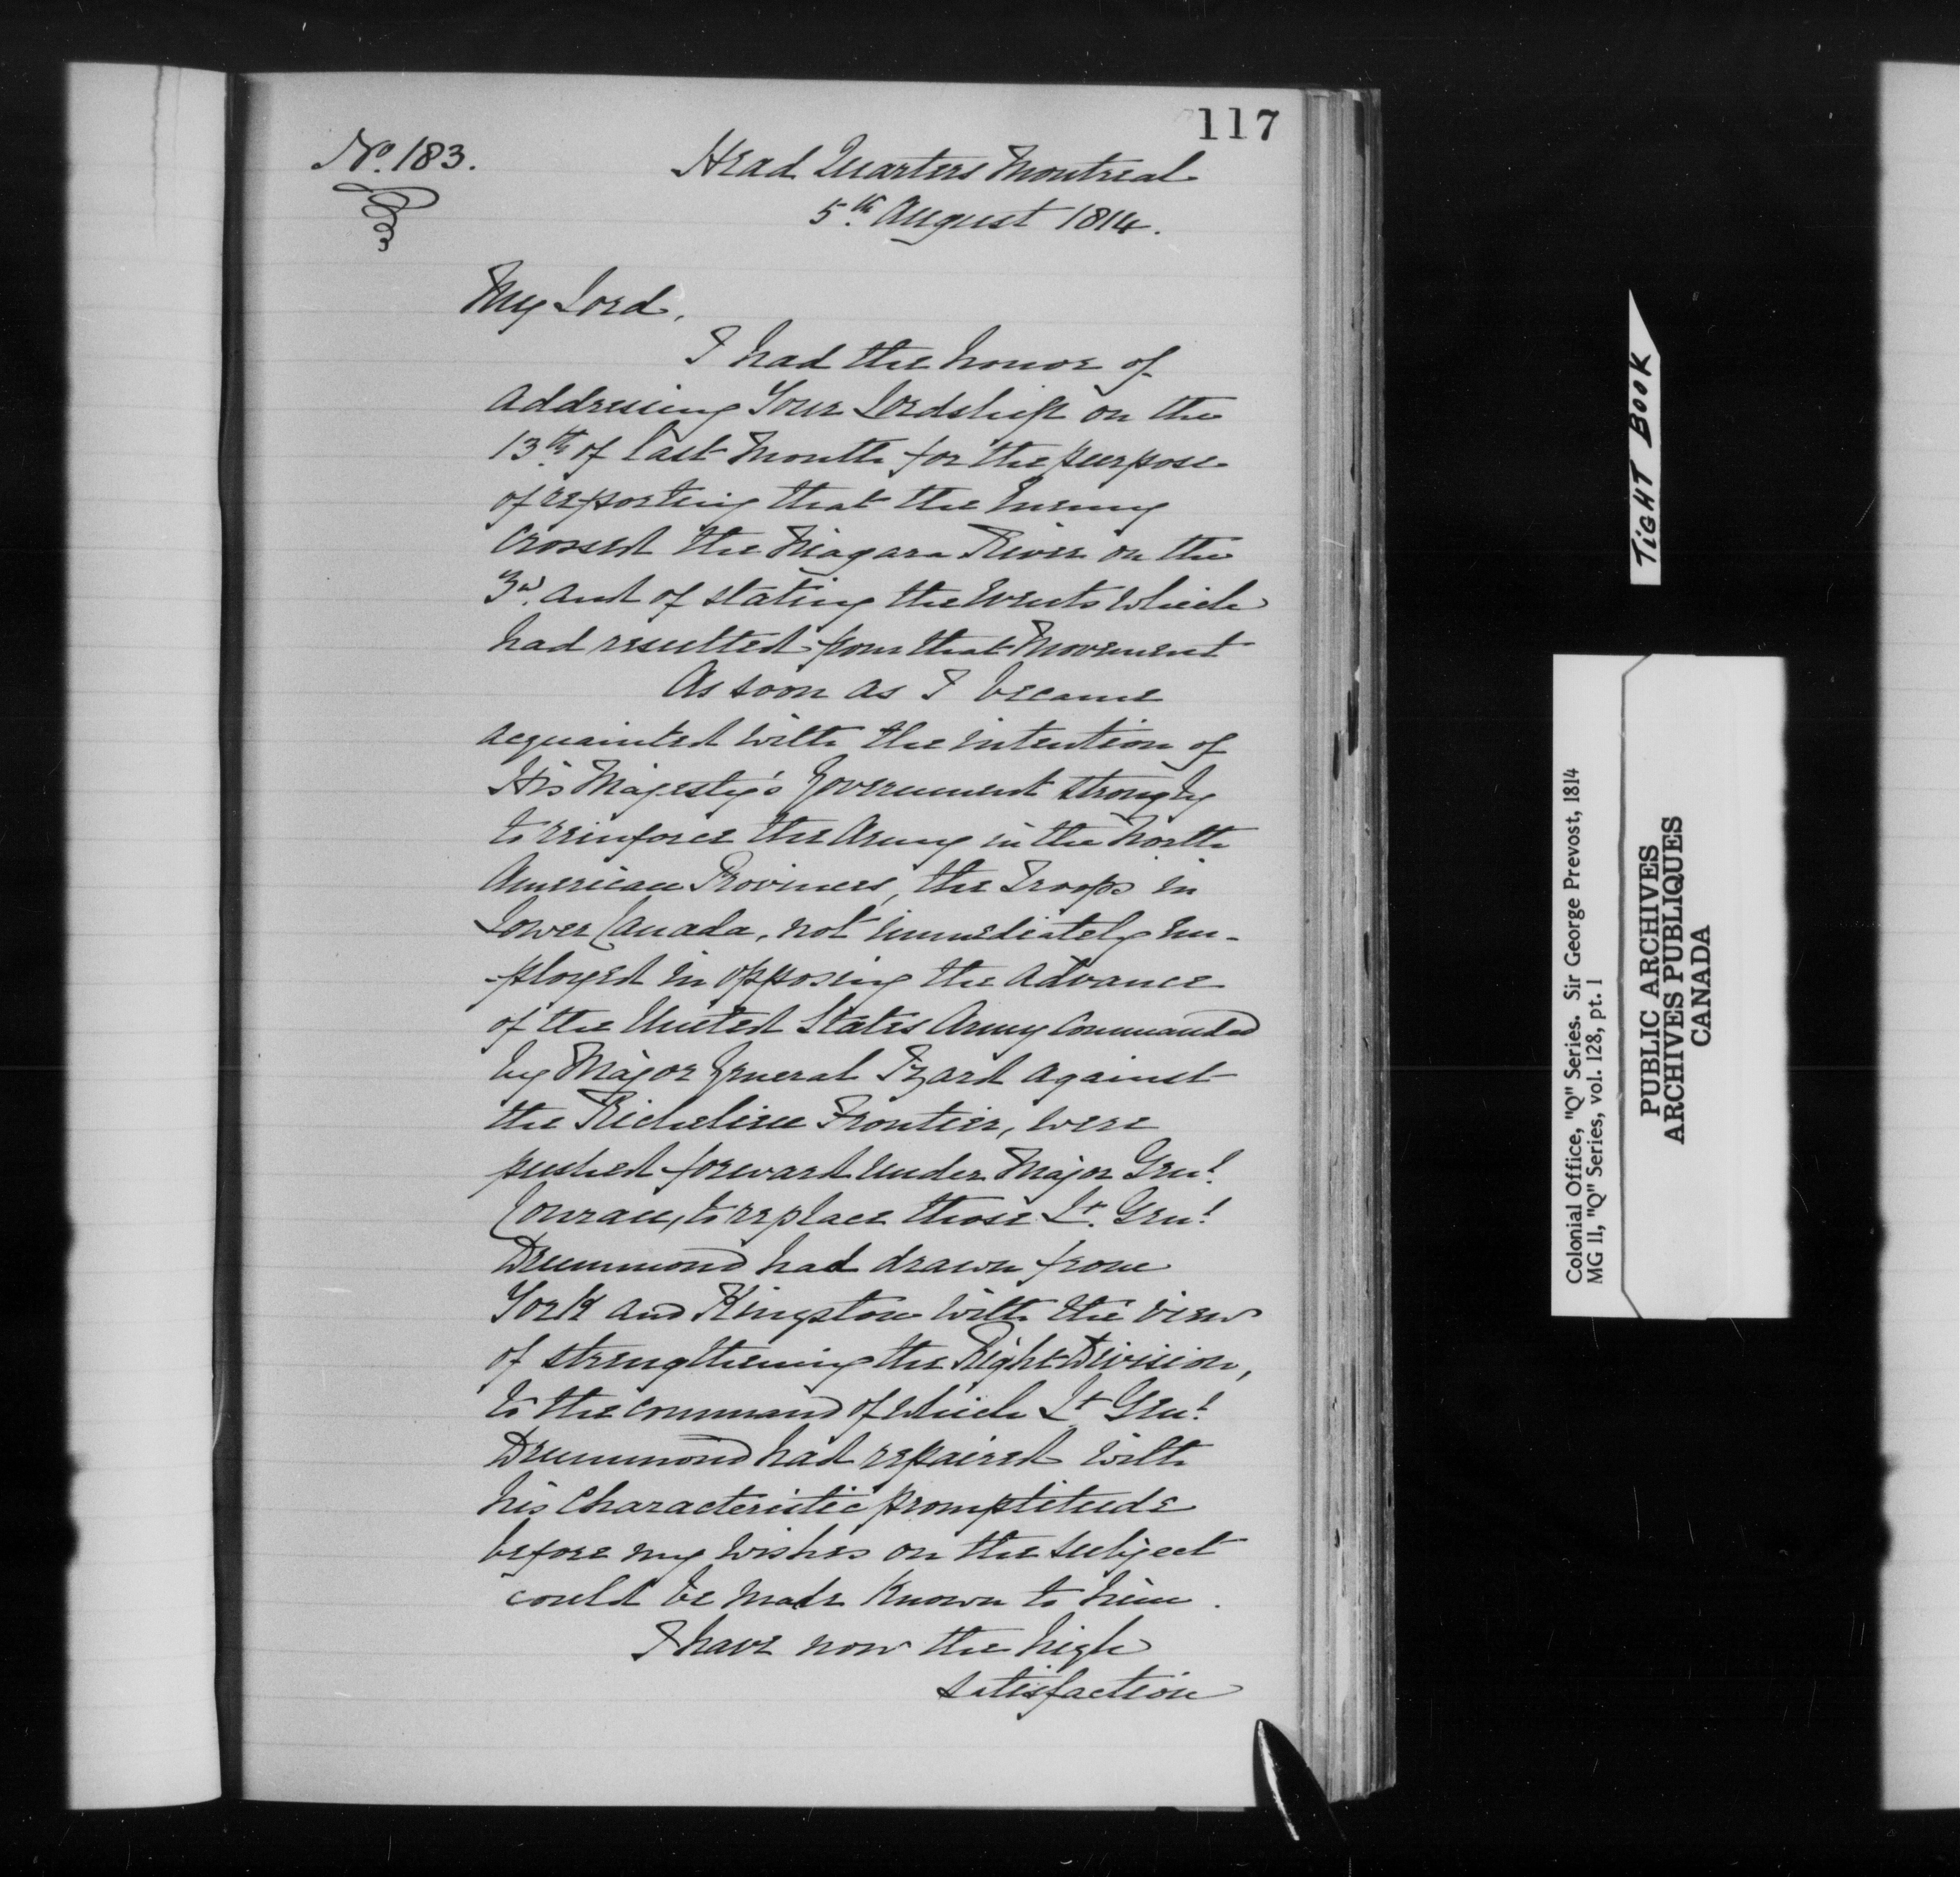 117
No. 183.
Head Quarters Montreal
5th August 1814.
My Lord,
I had the honor of
addressing Your Lordship on the
13th of last Month for the purpose
of reporting that the Enemy
crossed the Niagara River on the
3d. and of stating the events which
had resulted from that Movement
As soon as I became
acquainted with the intention of
His Majesty's Government strongly
to reinforce the Army in the North
American Provinces, the Troops in
Lower Canada, not immediately em-
-ployed in opposing the advance
of the United States Army Commanded
by Major General Izard against
the Richelieu Frontier, were
pushed forward under Major Genl.
Conran, to replace those Lt. Genl.
Drummond had drawn from
York and Kingston with the view
of strengthening the Right Division,
to the command of which Lt. Genl.
Drummond had repaired with
his Characteristic promptitude
before my wishes on the subject
could be made known to him.
I have now the high
satisfaction
TIGHT BOOK
Colonial Office, "Q" Series. Sir George Prevost, 1814
MG 11, "Q" Series, vol. 128, pt. 1
PUBLIC ARCHIVES
ARCHIVES PUBLIQUES
CANADA